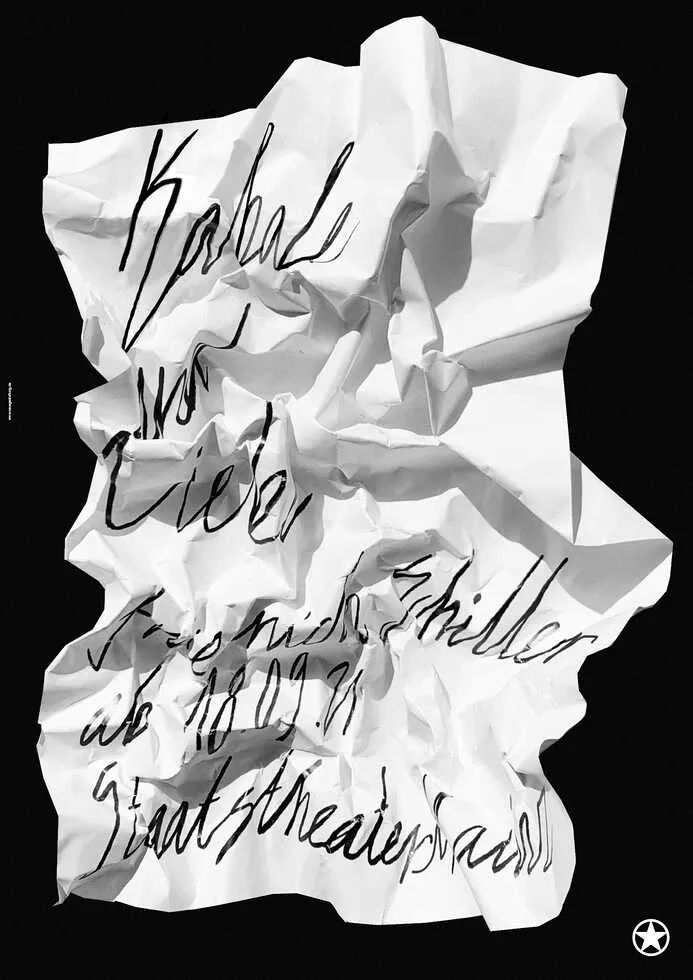 Kabale
und
Liebe
Friedrich Schiller
ab 18.09.21
Staatstheater Mainz